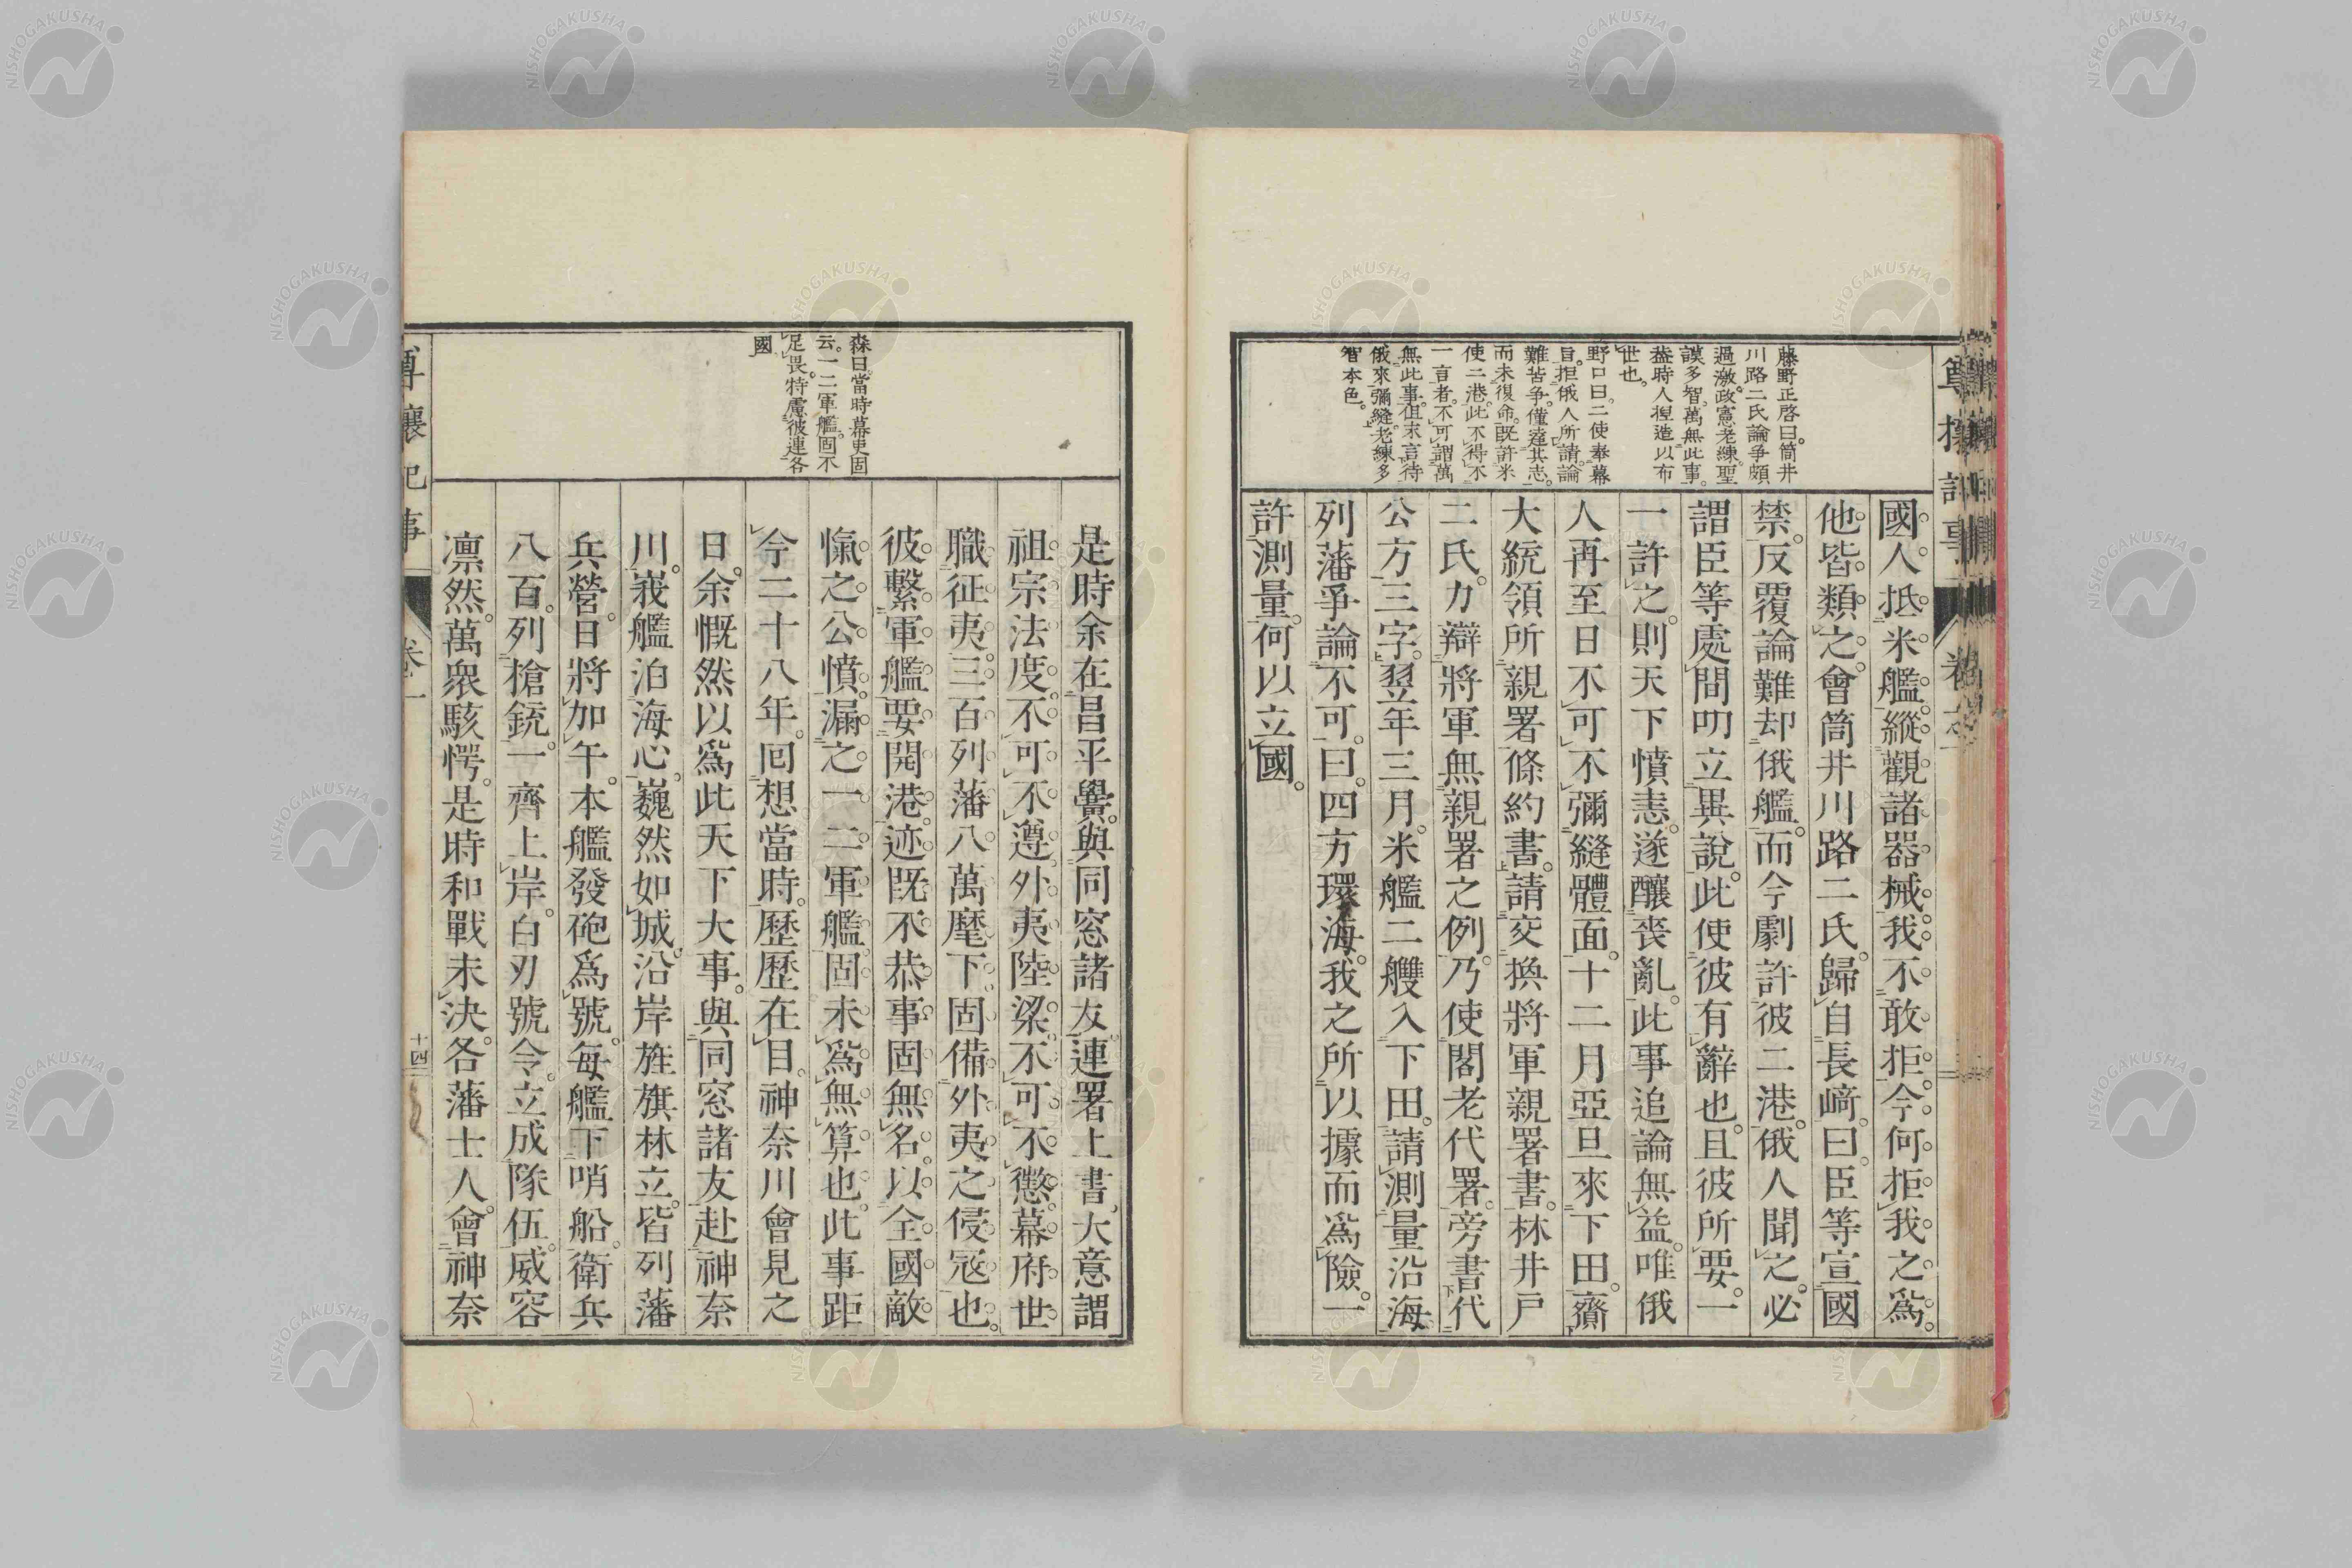 藤野正啓曰。筒井
川路二氏論爭頗
過激。政憲老練。聖
謨多智。萬無此事。
葢時人揑造以布
世也。
野口曰。二使奉幕
旨。拒俄人所請。論
難苦爭。僅達其志。
而未復命。既許米
使二港。此不得不
一言者。不可謂萬
無此事。但末言待
俄來彌縫。老練多
智本色。
國人抵米艦。縱觀諸器械。我不敢拒。今何拒。我之爲。
他皆類之。會筒井川路二氏。歸自長﨑。曰。臣等宣國
禁。反覆論難却俄艦。而今劇許彼二港。俄人聞之。必
謂臣等處間叨立異說。此使彼有辭也。且彼所要。一
一許之。則天下憤恚。遂釀喪亂。此事追論無益。唯俄
人再至日不可不彌縫體面。十二月亞旦來下田。齎
大統領所親署條約書。請交換將軍親署書。林井戶
二氏。力辯將軍無親署之例。乃使閣老代署。旁書代
公方三字。翌年三月。米艦二艘入下田。請測量沿海
列藩爭論不可。曰。四方環海。我之所以據而爲險。一
許測量。何以立國。
森曰。當時幕吏固
云。一二軍艦。固不
足畏。特慮彼連各
國
是時余在昌平黌。與同窓諸友。連署上書。大意謂
祖宗法度。不可不遵。外夷陸梁。不可不懲。幕府世
職征夷。三百列藩。八萬麾下。固備外夷之侵冦也。
彼繫軍艦。要開港。迹既不恭。事固無名。以全國敵
愾之公憤。漏之一二軍艦。固未爲無算也。此事距
今二十八年。囘想當時。歷歷在目。神奈川會見之
日。余慨然以爲此天下大事。與同窓諸友赴神奈
川。峩艦泊海心。巍然如城。沿岸旌旗林立。皆列藩
兵營。日將加午。本艦發砲爲號。每艦下哨船。衛兵
八百。列槍銃。一齊上岸。白刃號令。立成隊伍。威容
凛然。萬衆駭愕。是時和戰未決。各藩士人。會神奈
尊攘紀事
卷一
十四